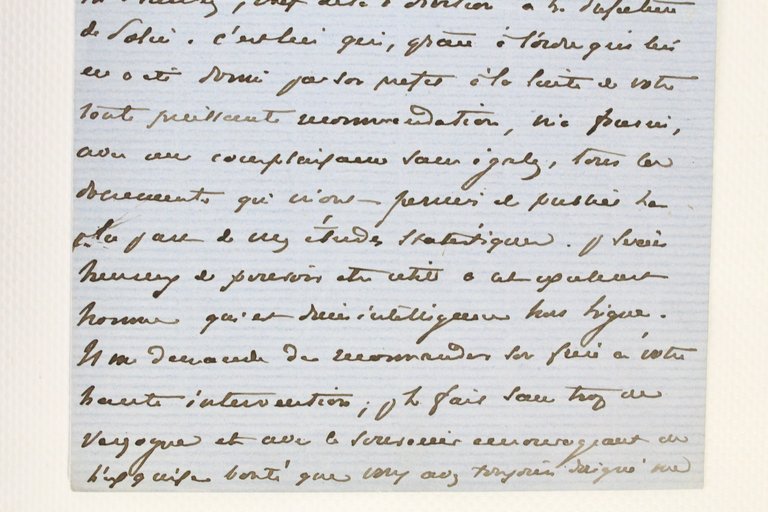 chef de la 1e division à la Préfecture
de Police. c'est lui qui, grâce à l'ordre qui lui
en a été donné par son préfet à la suite de votre
toute puissante recommandation, m'a fourni,
avec une complaisance sans égale, tous les
documents qui m'ont permis de publier la
plupart de mes études statistiques. je serais
heureux de pouvoir être utile à cet excellent
homme qui est d'une intelligence hors ligne.
Il me demande de recommander son frère à votre
haute intervention ; je le fais sans trop de
vergogne et avec le souvenir encourageant de
l'exquise bonté que vous avez toujours daigné me